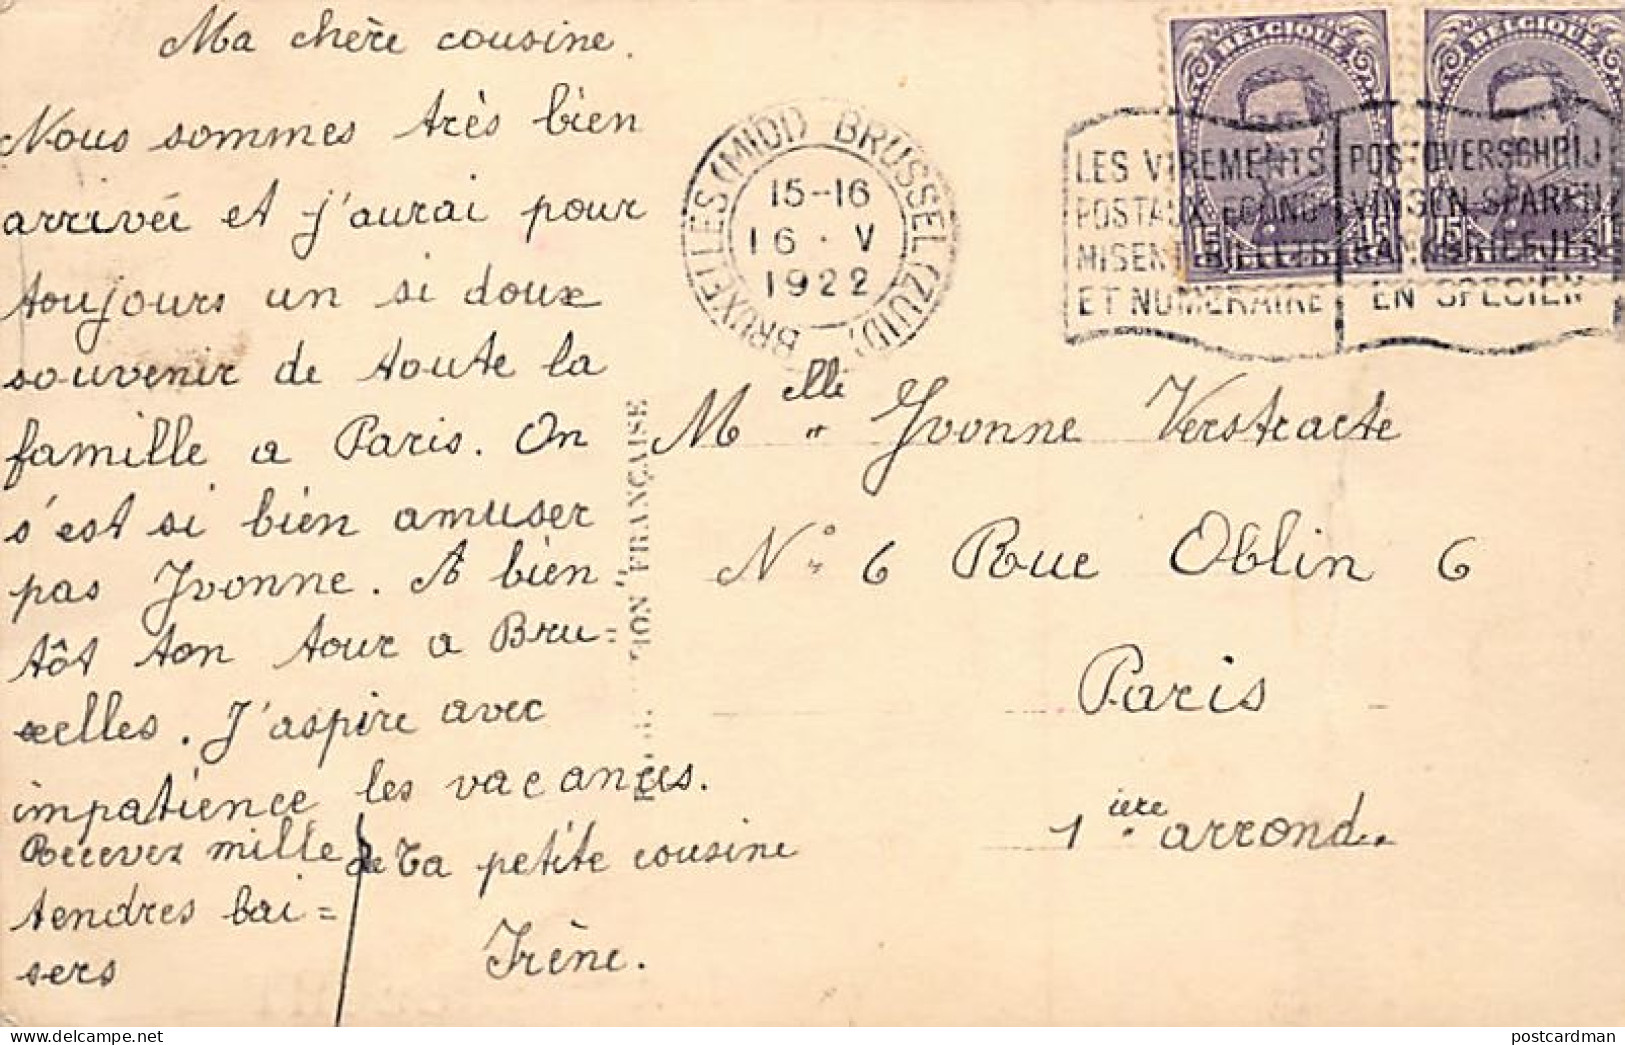 Ma chère cousine.
Nous sommes très bien
arrivéi et j'aurai pour
toujours un si doux
souvenir de toute la
famille a Paris. On
s'est si bien amuser
pas Yvonne. A bien
tôt ton tour a Bru=
xelles. J'aspire avec
impatience les vacances.
Recevez mille
tendres bai=
sers
de Ta petite cousine
Irène.
FRANÇAISE
BRUXELLES (MIDI) BRUSSEL (ZUID)
15-16
16 · V
1922
BELGIQUE
15 15
BELGIQUE
15 1
LES VIREMENTS
POSTAUX ECONO-
MISENT BILLETS
ET NUMERAIRE
POSTOVERSCHRIJ
VINGEN SPAREN
BANKBRIEFJES
EN SPECIEN
Melle Yvonne Verstraete
N° 6 Rue Oblin 6
Paris
1ière arrond..
postcardman